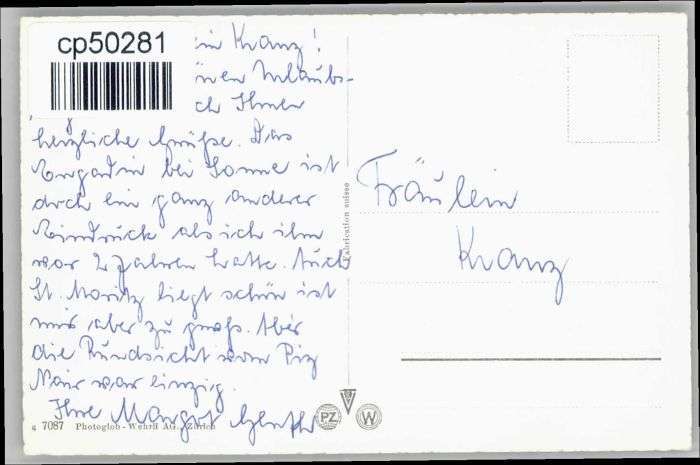 cp50281
ein Kranz!
nen Urlaubs-
ch Ihnen
herzliche Grüße. Das
Engadin bei Sonne ist
doch ein ganz anderer
Eindruck als ich ihn
vor 2 Jahren hatte. Auch
St. Moritz liegt schön ist
mir aber zu groß. Aber
die Rundsicht vom Piz
Nair war einzig.
Ihre Margot
Fräulein
Kranz
Fabrication suisse
7087 Photoglob-Wehrli AG., Zürich
PZ
W